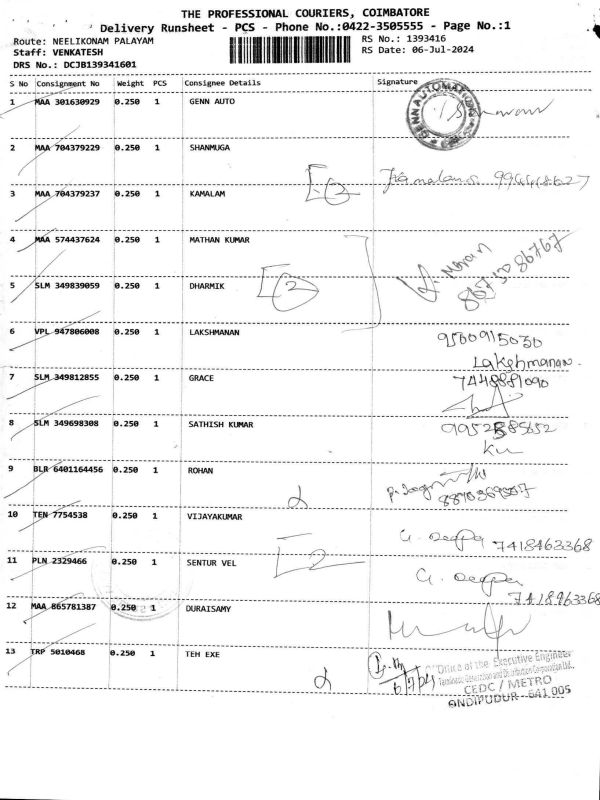 THE PROFESSIONAL COURIERS, COIMBATORE
Delivery Runsheet - PCS - Phone No.:0422-3505555 - Page No.:1
Route: NEELIKONAM PALAYAM RS No.: 1393416
Staff: VENKATESH RS Date: 06-Jul-2024
DRS No.: DCJB139341601
S No Consignment No Weight PCS Consignee Details Signature
1 MAA 301630929 0.250 1 GENN AUTO
GENN AUTOMATION
2 MAA 704379229 0.250 1 SHANMUGA
3 MAA 704379237 0.250 1 KAMALAM
2
4 MAA 574437624 0.250 1 MATHAN KUMAR
5 SLM 349839059 0.250 1 DHARMIK
2
6 VPL 947806008 0.250 1 LAKSHMANAN
Lakshmanan
7 SLM 349812855 0.250 1 GRACE
7448881090
8 SLM 349698308 0.250 1 SATHISH KUMAR
9 BLR 6401164456 0.250 1 ROHAN
10 TEN 7754538 0.250 1 VIJAYAKUMAR
7418463368
2
11 PLN 2329466 0.250 1 SENTUR VEL
7418463368
12 MAA 865781387 0.250 1 DURAISAMY
13 TRP 5010468 0.250 1 TEH EXE
6/7/24
Office of the Executive Engineer
Tamilnadu Generation and Distribution Corporation Ltd.,
CEDC / METRO
ONDIPUDUR - 641 005